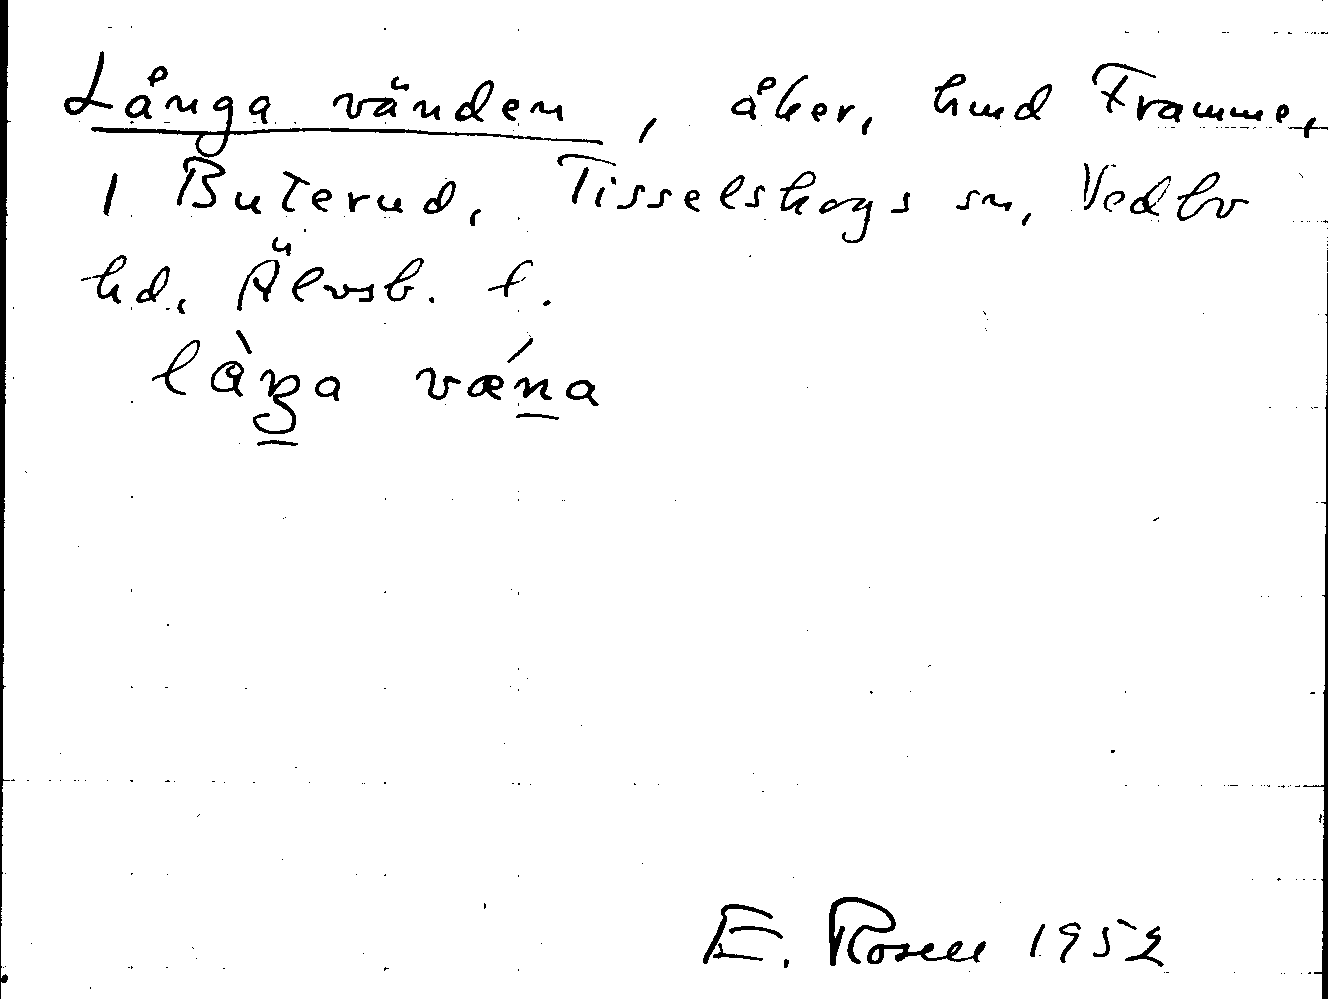 Långa vänden, åker, hmd Framme,
1 Buterud, Tisselskogs sn, Vedbo
hd, Älvsb. l.
làŋa vǽna
E. Rosell 1952